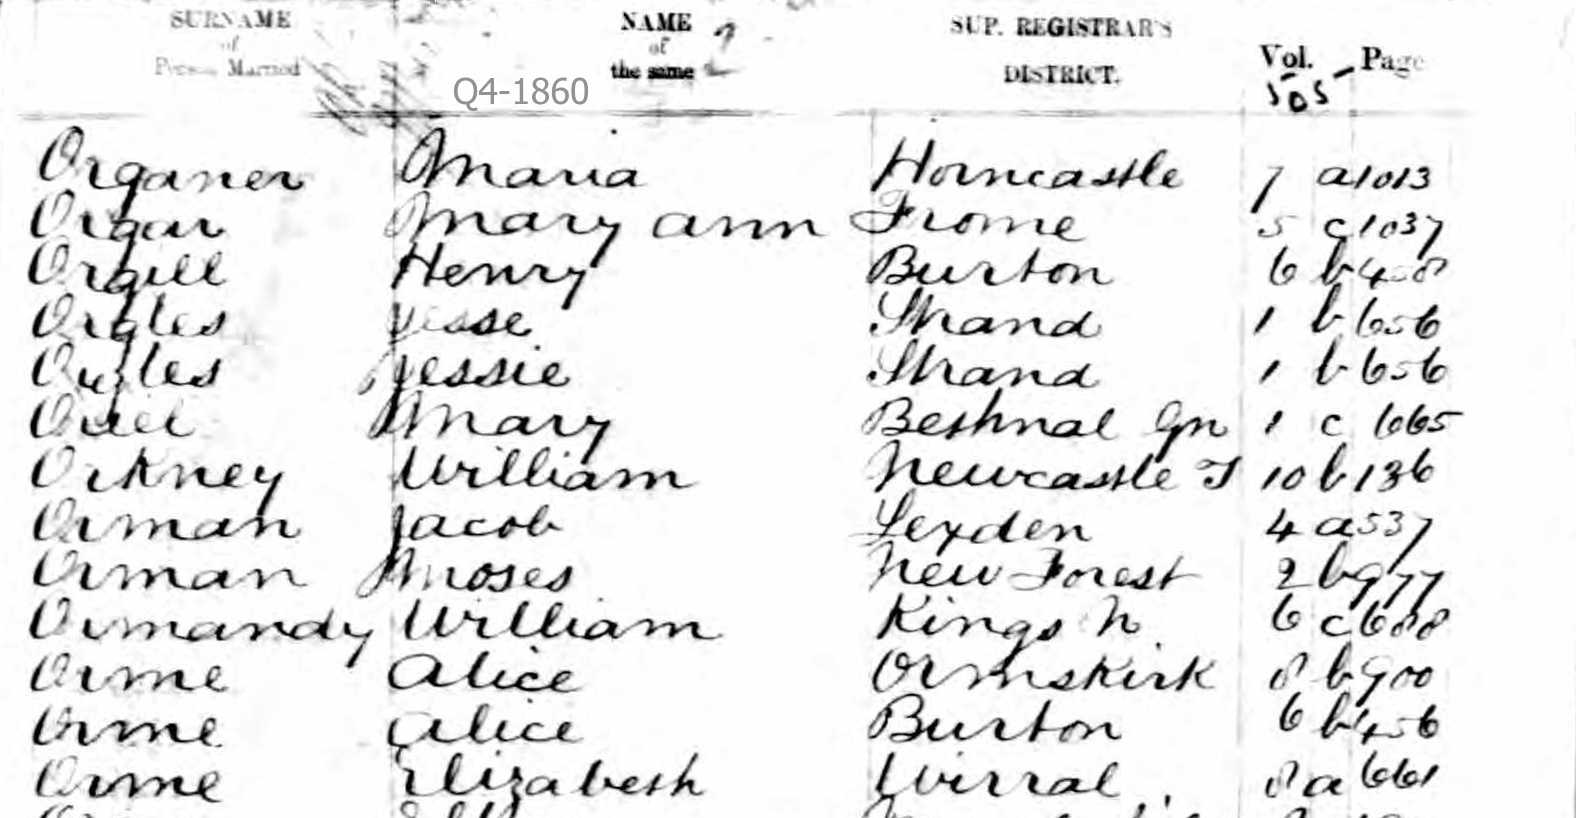 SURNAME of Person Married NAME of the same SUP. REGISTRAR'S DISTRICT. Vol. Page
Q4-1860
Organer Maria Horncastle 7 a 1013
Orgar Mary Ann Frome 5 c 1037
Orgill Henry Burton 6 b 458
Orgles Jesse Strand 1 b 656
Orgles Jessie Strand 1 b 656
Oriel Mary Bethnal Gn 1 c 665
Orkney William Newcastle T 10 b 136
Orman Jacob Lexden 4 a 537
Orman Moses New Forest 2 b 977
Ormandy William Kings N. 6 c 688
Orme Alice Ormskirk 8 b 900
Orme Alice Burton 6 b 456
Orme Elizabeth Wirral 8 a 661